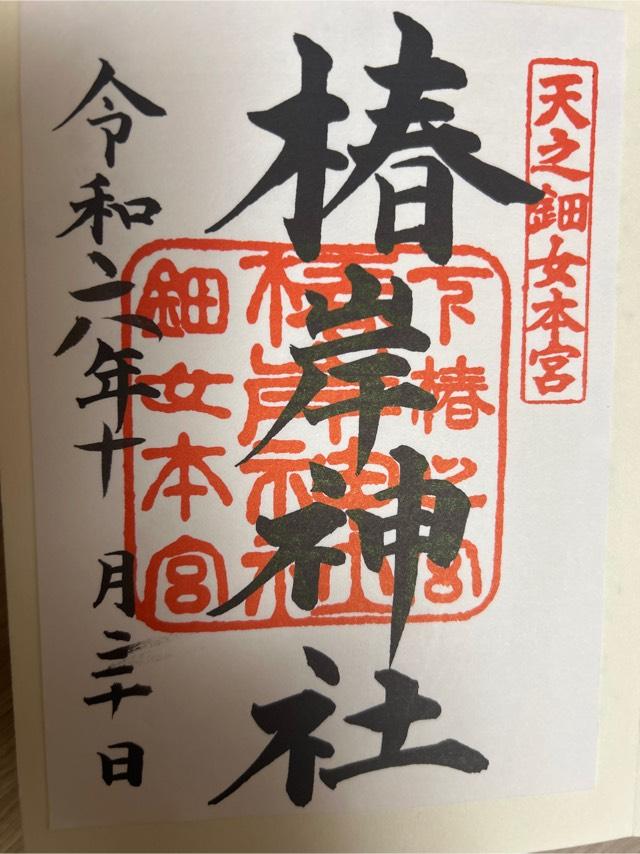 天之鈿女本宮
椿岸神社
鈿女本宮
令和六年十月三十日